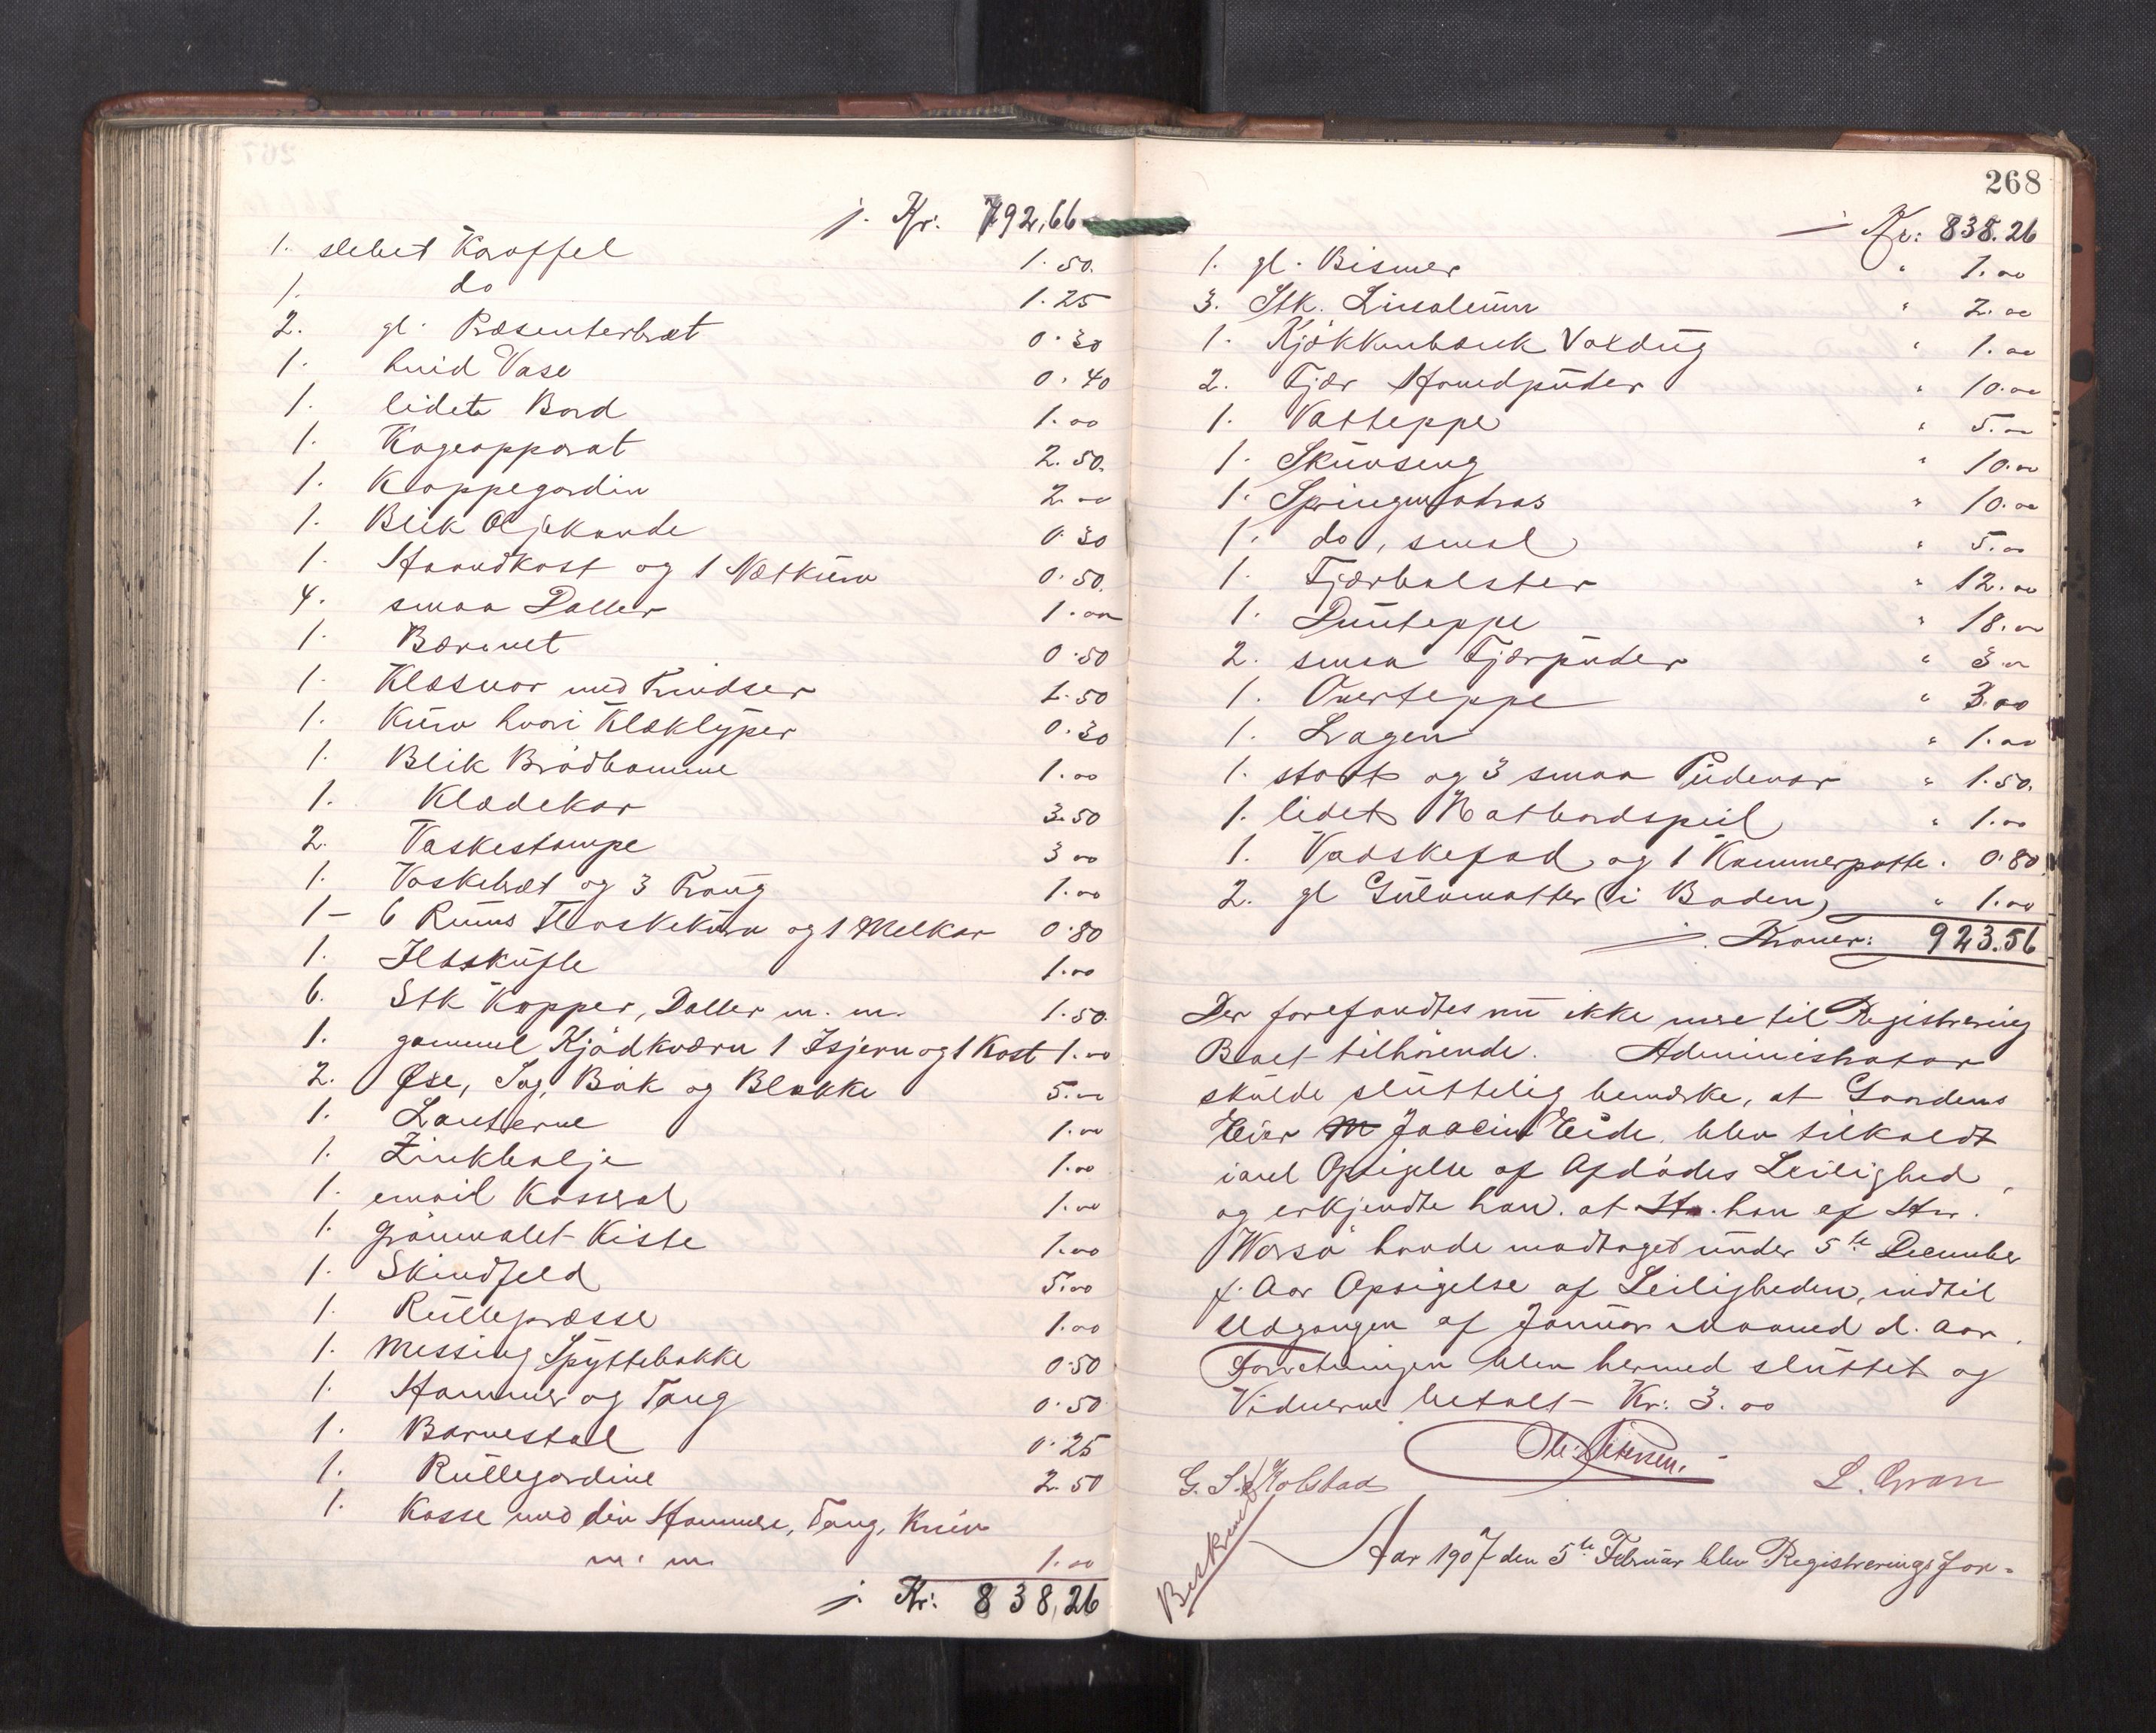 j. Kr: 792,66
1. slebet Karaffel 1.50.
1. do 1.25
2. gl. Præsenterbræt 0.30
1. hvid Vase 0.40
1. lidet Bord 1.00
1. Kogeapparat 2.50.
1. Kappegardin 2.00
1. Blik Oljekande 0.30
1. Haandkost og 1 Nætkurv 0.50.
4. smaa Daller 1.00
1. Bærenet 0.50
1. Klæsnor med Trindser 1.50
1. Kurv hvori Klæklyper 0.30
1. Blik Brödbomme 1.00
1. Klædekar 3.50
2. Vaskestampe 3 00
1. Vaskebræt og 3 Traug 1.00
1 - 6 Rums Flaskekurv og 1 Melkar 0.80
1. Ildskuffe 1.00
6. Stk Kopper, Daller m. m. 1.50.
1. gammel Kjödkværn 1 Isjern og 1 Kost 1.00
2. Øxe, Sag, Bak og Blokke 5.00
1. Lanterne 1.00
1. Zinkbalje 1.00
1. email Kasserol 1.00
1. grönmalet Kiste 1.00
1. Skindfeld 5.00
1. Rullepresse 1.00
1. Messing Spyttebakke 0.50
1. Hammer og Tang 0.50
1. Barnestol 0.25
1. Rullegardine 2.50
1. Kasse med div Hammere, Tang, Kniv
m. m. 1.00
j. Kr: 838,26
268
j Kr: 838.26
1. gl. Bismer " 1.00
3. Stk. Linoleum " 2.00
1. Kjøkkenbænk Voxdug " 1.00
2. Fjær Hovedpuder " 10.00
1. Vatteppe " 5.00
1. Skuvseng " 10.00
1. Springmatras " 10.00
1. do, smal " 5.00
1. Fjærbolster " 12.00
1. Dunteppe " 18.00
2. smaa Fjærpuder " 3.00
1. Overteppe " 3.00
1. Lagen " 1.00
1. stort og 3 smaa Pudevar " 1.50.
1. lidet Natbordspeil " 1.00
1. Vadskefad og 1 Kammerpotte " 0.80
2. gl Gulvmatter (i Boden) " 1.00
j. Kroner: 923.56
Der forefandtes nu ikke mere til Registrering
Boet tilhørende. Administrator
skulde sluttelig bemærke, at Gaardens
Eier Joacim Eide blev tilkaldt
i anl Opsigelse af Afdödes Leilighed,
og erkjendte han. at han af Hr.
Worsö havde modtaget under 5te December
f. Aar Opsigelse af Leiligheden, indtil
Udgangen af Januar Maaned d. Aar.
Forretningen blev hermed sluttet og
Vidnerne betalt - Kr: 3.00
G. S. Kolstad L. Gran
Beskrevet
Aar 1907 den 5te Februar blev Registreringsfor-